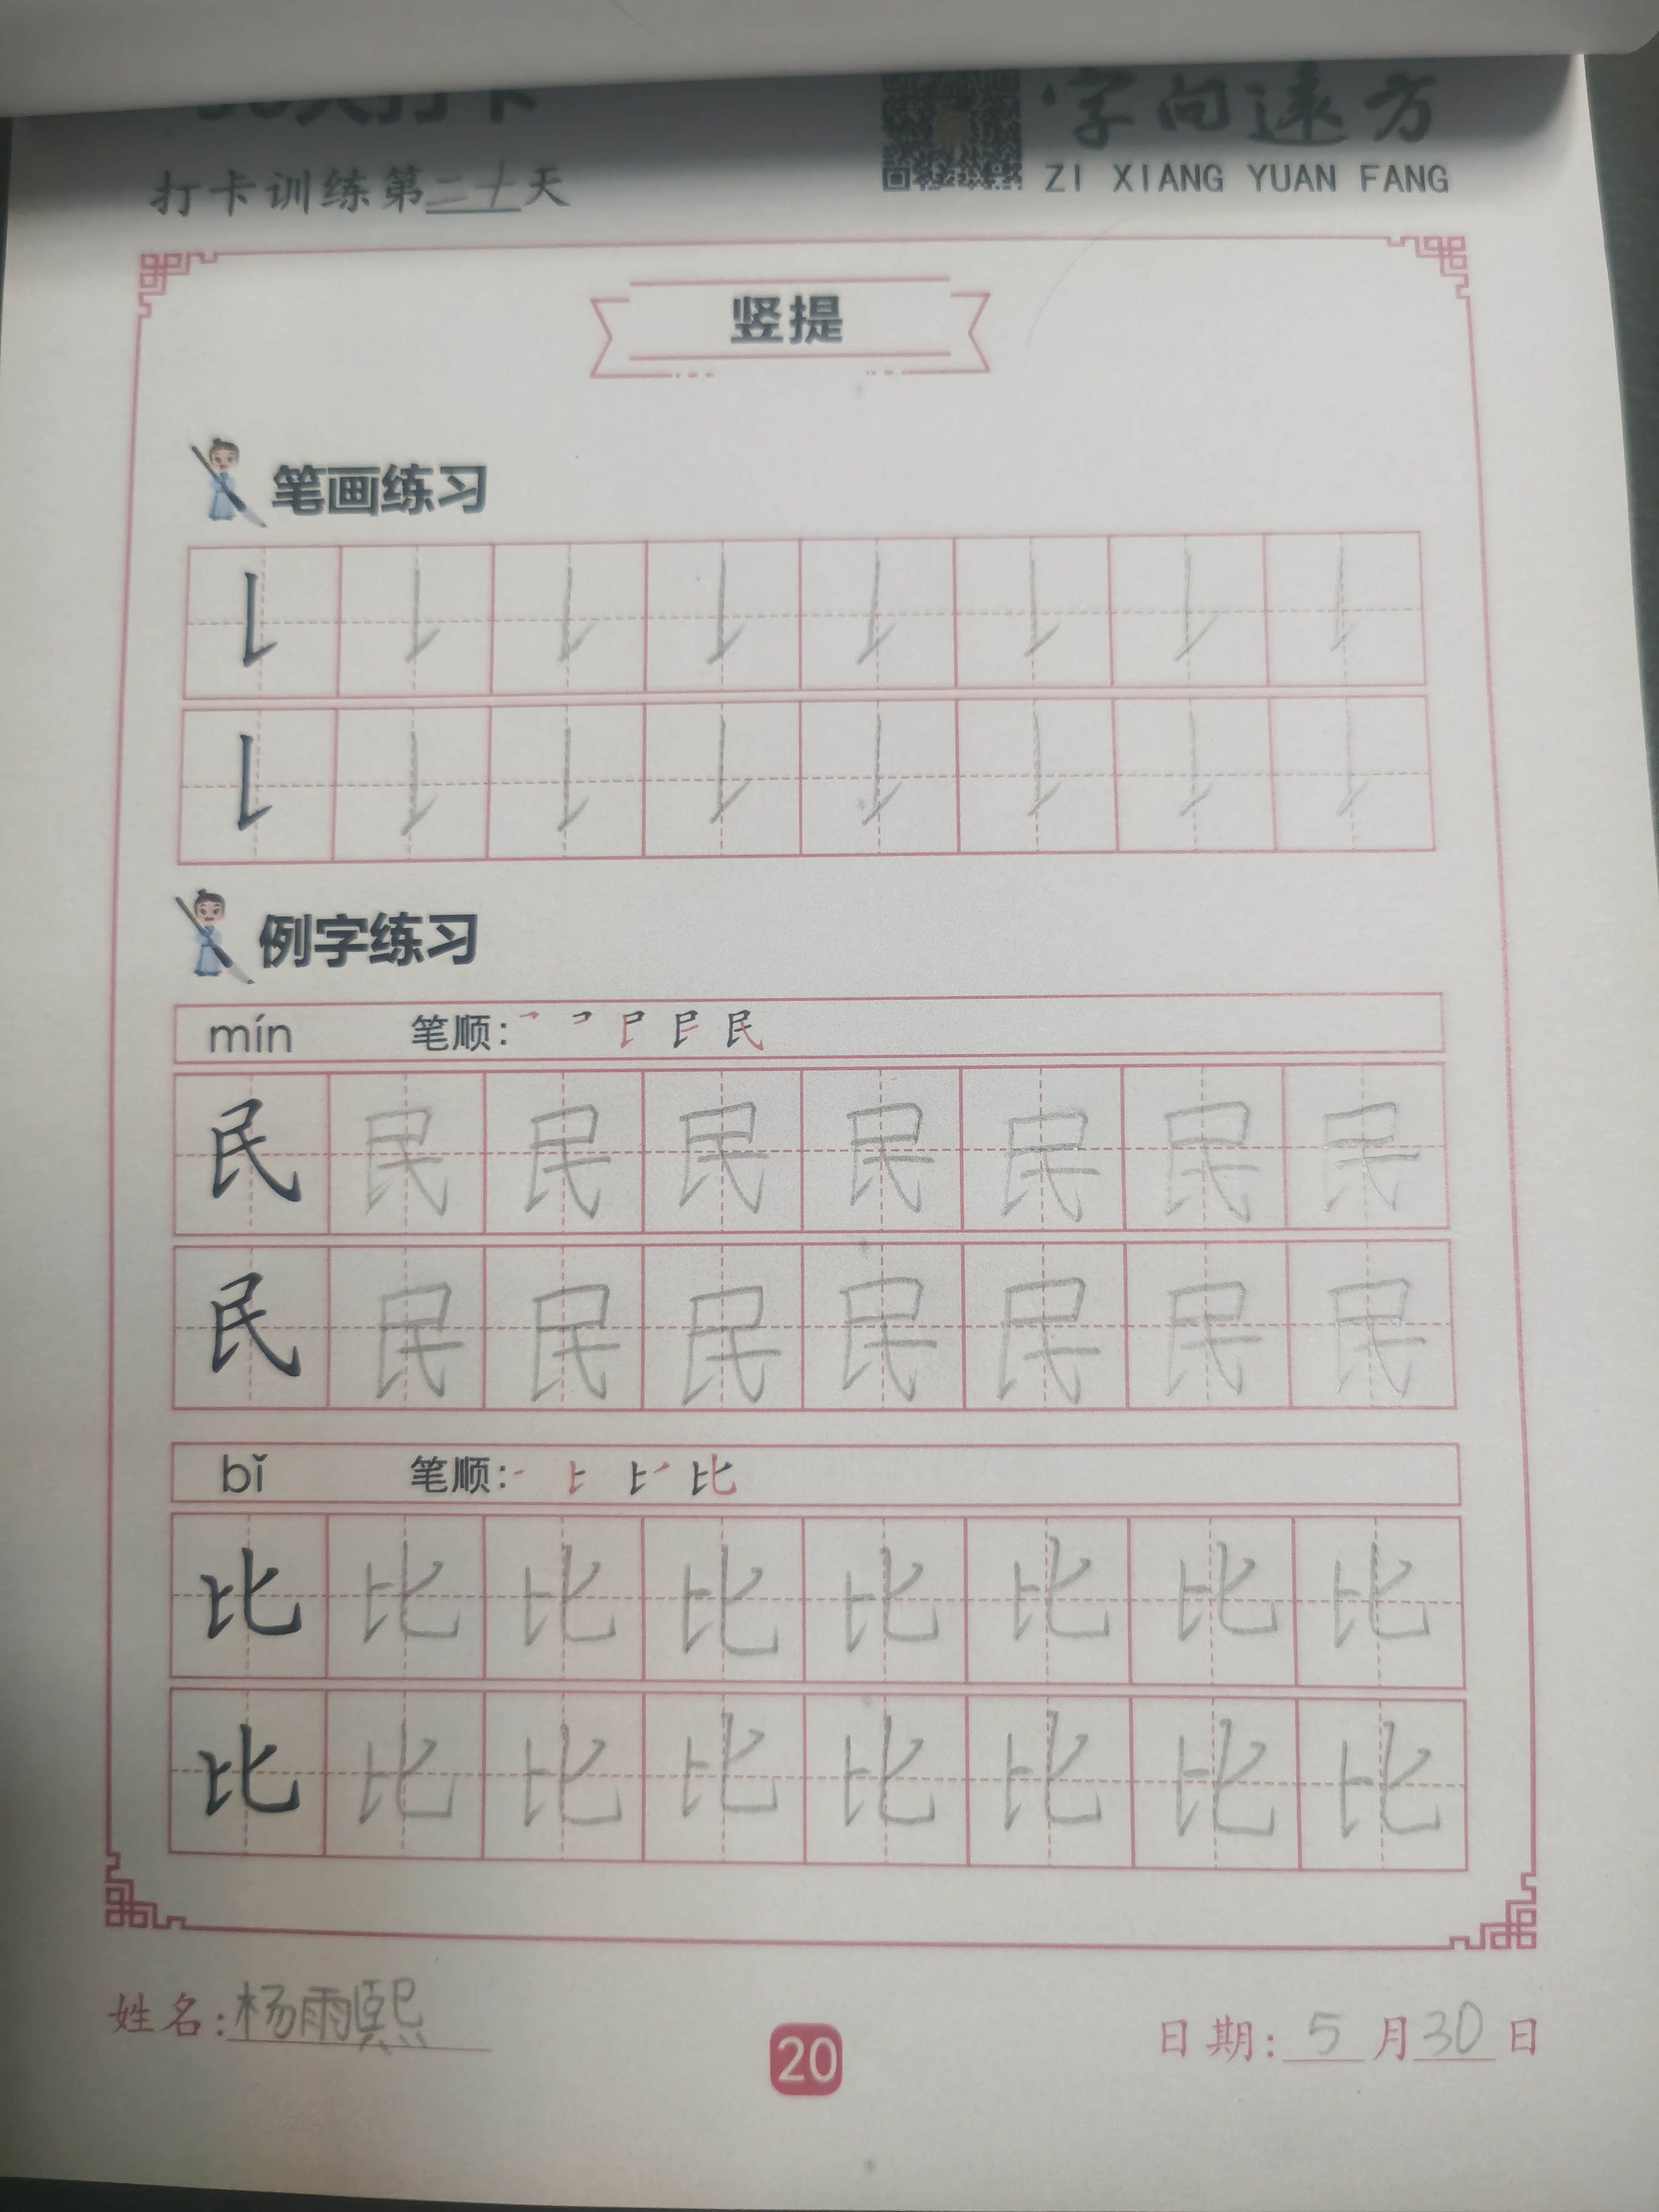 天打卡
字向远方
打卡训练第二十天
ZI XIANG YUAN FANG
竖提
笔画练习
例字练习
mín 笔顺:
民 民 民 民 民 民 民 民
民 民 民 民 民 民 民 民
bǐ 笔顺:
比 比 比 比 比 比 比 比
比 比 比 比 比 比 比 比
姓名:杨雨熙
20
日期:5月30日